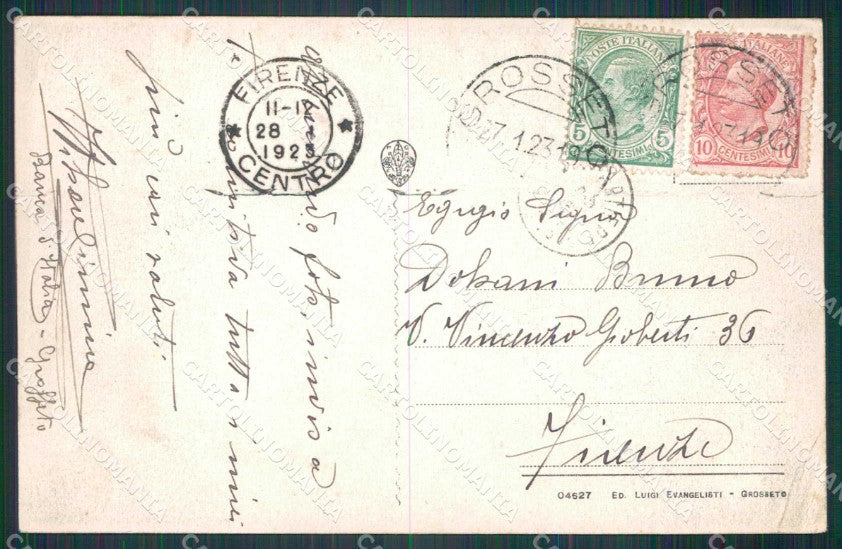 POSTE ITALIANE
5 5
CENTESIMI
ITALIANE
10 10
CENTESIMI
GROSSETO
27.1.23
GROSSETO
FIRENZE
28
1923
CENTRO
Egregio Signor
Dobani Bruno
V. Vincenzo Gioberti 36
Firenze
04627 ED. LUIGI EVANGELISTI - GROSSETO
foto, invio a
tutta i miei
più cari saluti
Banca d'Italia - Grosseto
CARTOLINOMANIA